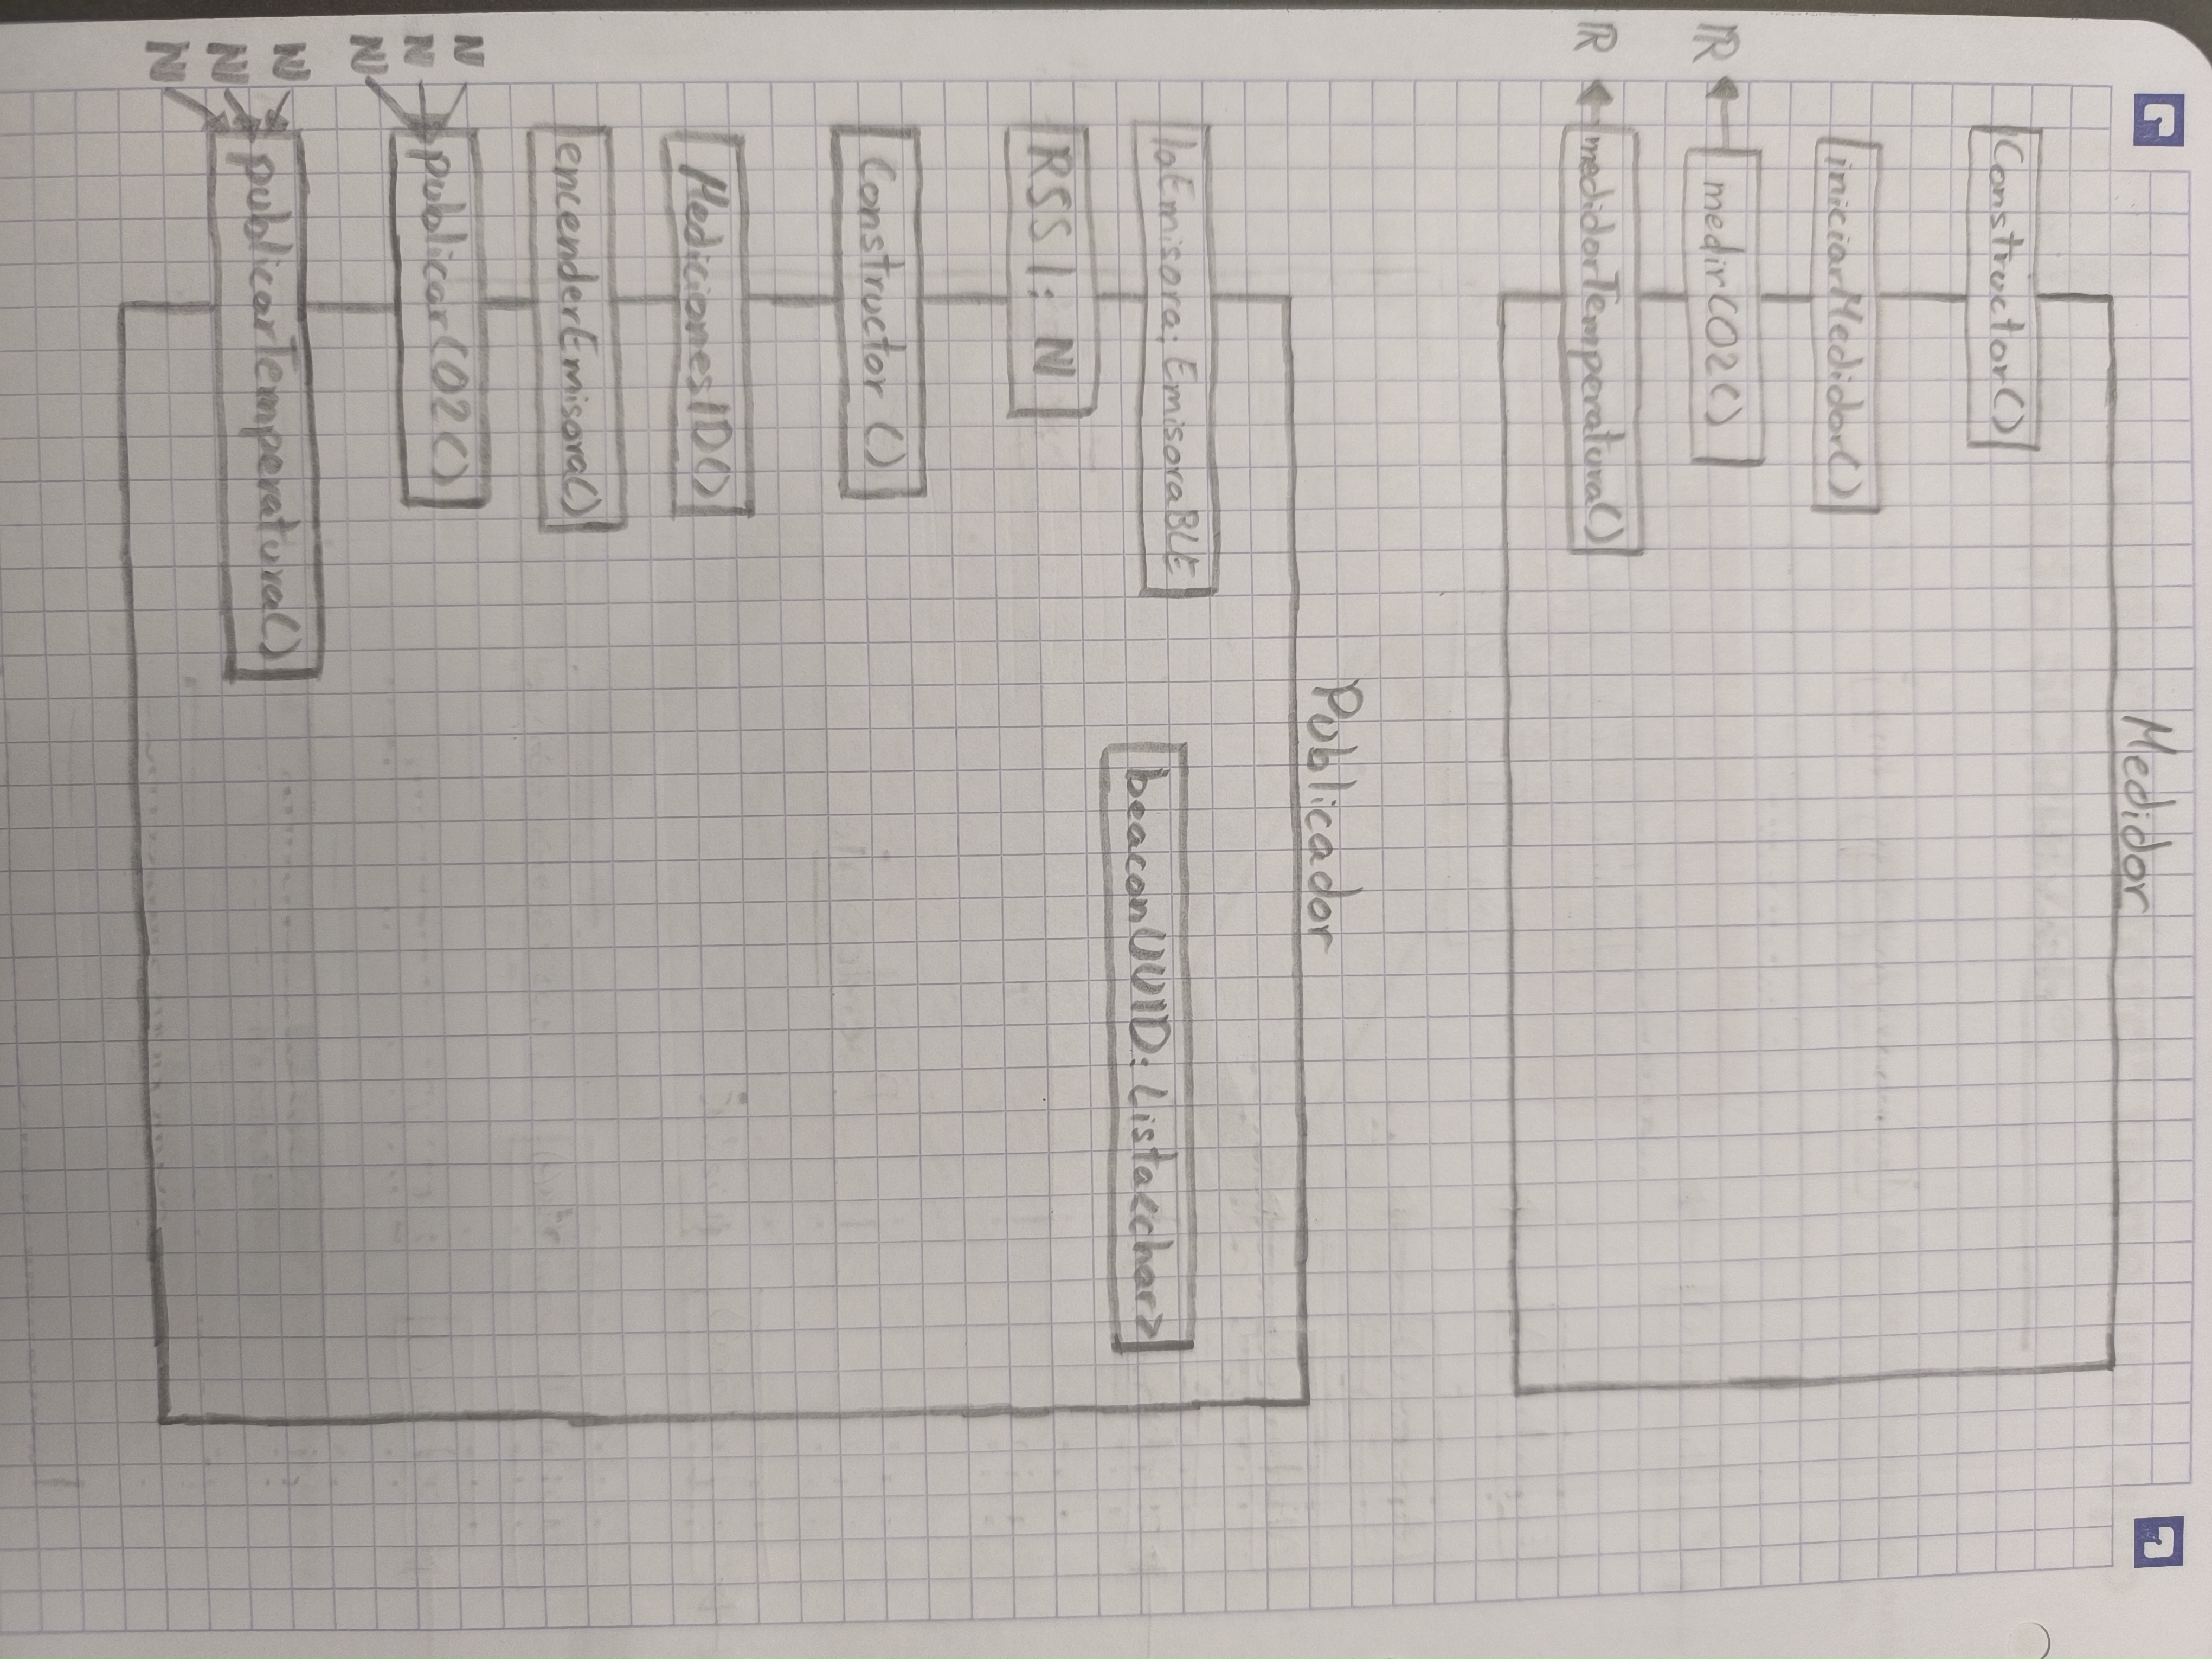 Medidor
Constructor()
iniciarMedidor()
ℝ medirCO2()
ℝ medidorTemperatura()
Publicador
laEmisora: EmisoraBLE
beaconUUID: Lista<char>
RSSI: ℕ
Constructor ()
MedicionesID()
encenderEmisora()
ℕ
publicarCO2()
ℕ
ℕ
ℕ
publicarTemperatura()
ℕ
ℕ